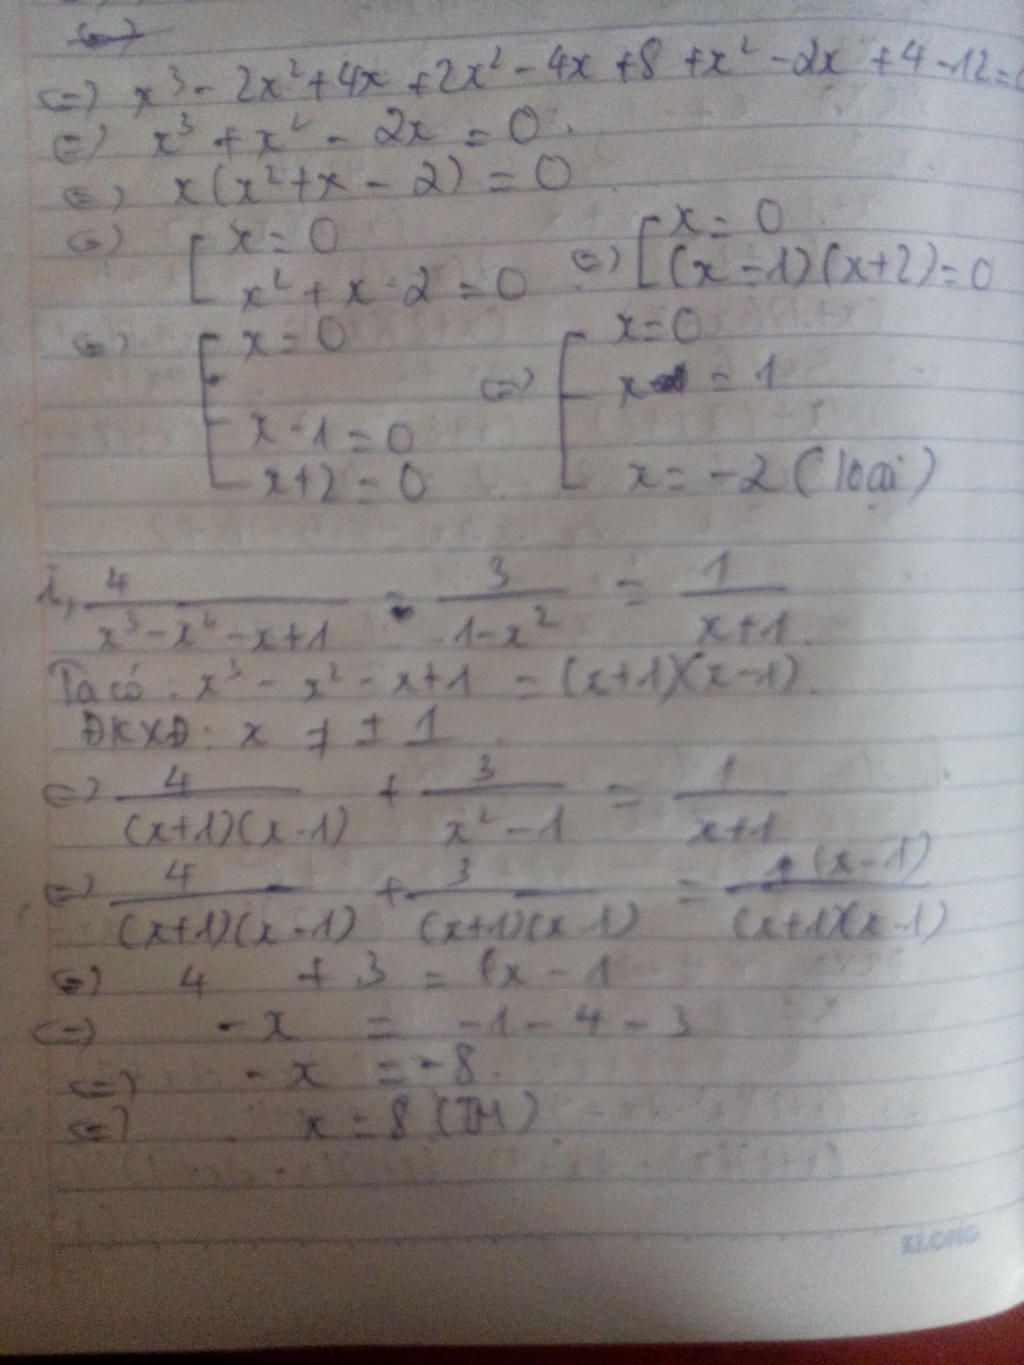 <=> x³ - 2x² + 4x + 2x² - 4x + 8 + x² - 2x + 4 - 12 =
<=> x³ + x² - 2x = 0.
<=> x(x² + x - 2) = 0
<=> [ x = 0 <=> [ x = 0
x² + x - 2 = 0 (x - 1)(x+2) = 0
<=> [ x = 0 <=> [ x = 0
x = 1
x - 1 = 0
x + 2 = 0 x = -2 (loại)
i, 4/(x³ - x² - x + 1) - 3/(1 - x²) = 1/(x+1)
Ta có: x³ - x² - x + 1 = (x+1)(x-1).
ĐKXĐ: x ≠ ± 1
<=> 4/((x+1)(x-1)) + 3/(x² - 1) = 1/(x+1)
<=> 4/((x+1)(x-1)) + 3/((x+1)(x-1)) = 1(x-1)/((x+1)(x-1))
<=> 4 + 3 = x - 1
<=> - x = -1 - 4 - 3
<=> - x = - 8.
<=> x = 8 (TM)
KLONG